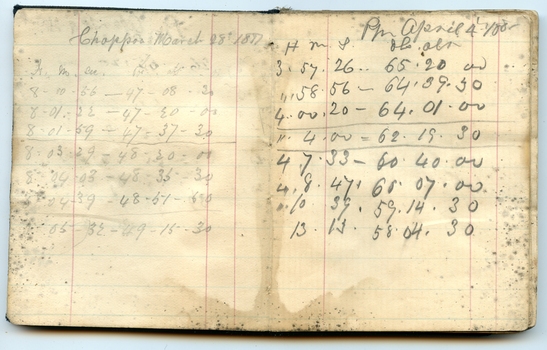 March 28th 1877
8-10-56-47-08-30
8-01-22-47-20-00
8-01-59-47-37-30
8-03-39-48-20-00
8-04-03-48-35-30
04-39-48-51-30
05-52-49-15-30
Pm April 4
H M S
3. 57. 26.. 65. 20 00
" 58. 56 - 64. 39. 30
4. 00. 20 - 64. 01. 00
" 4. 00 - 62. 19. 30
4 7. 33 - 60 40. 00
4. 8. 47. 60. 07. 00
" 10 39. 59. 14. 30
13. 13. 58. 04. 30